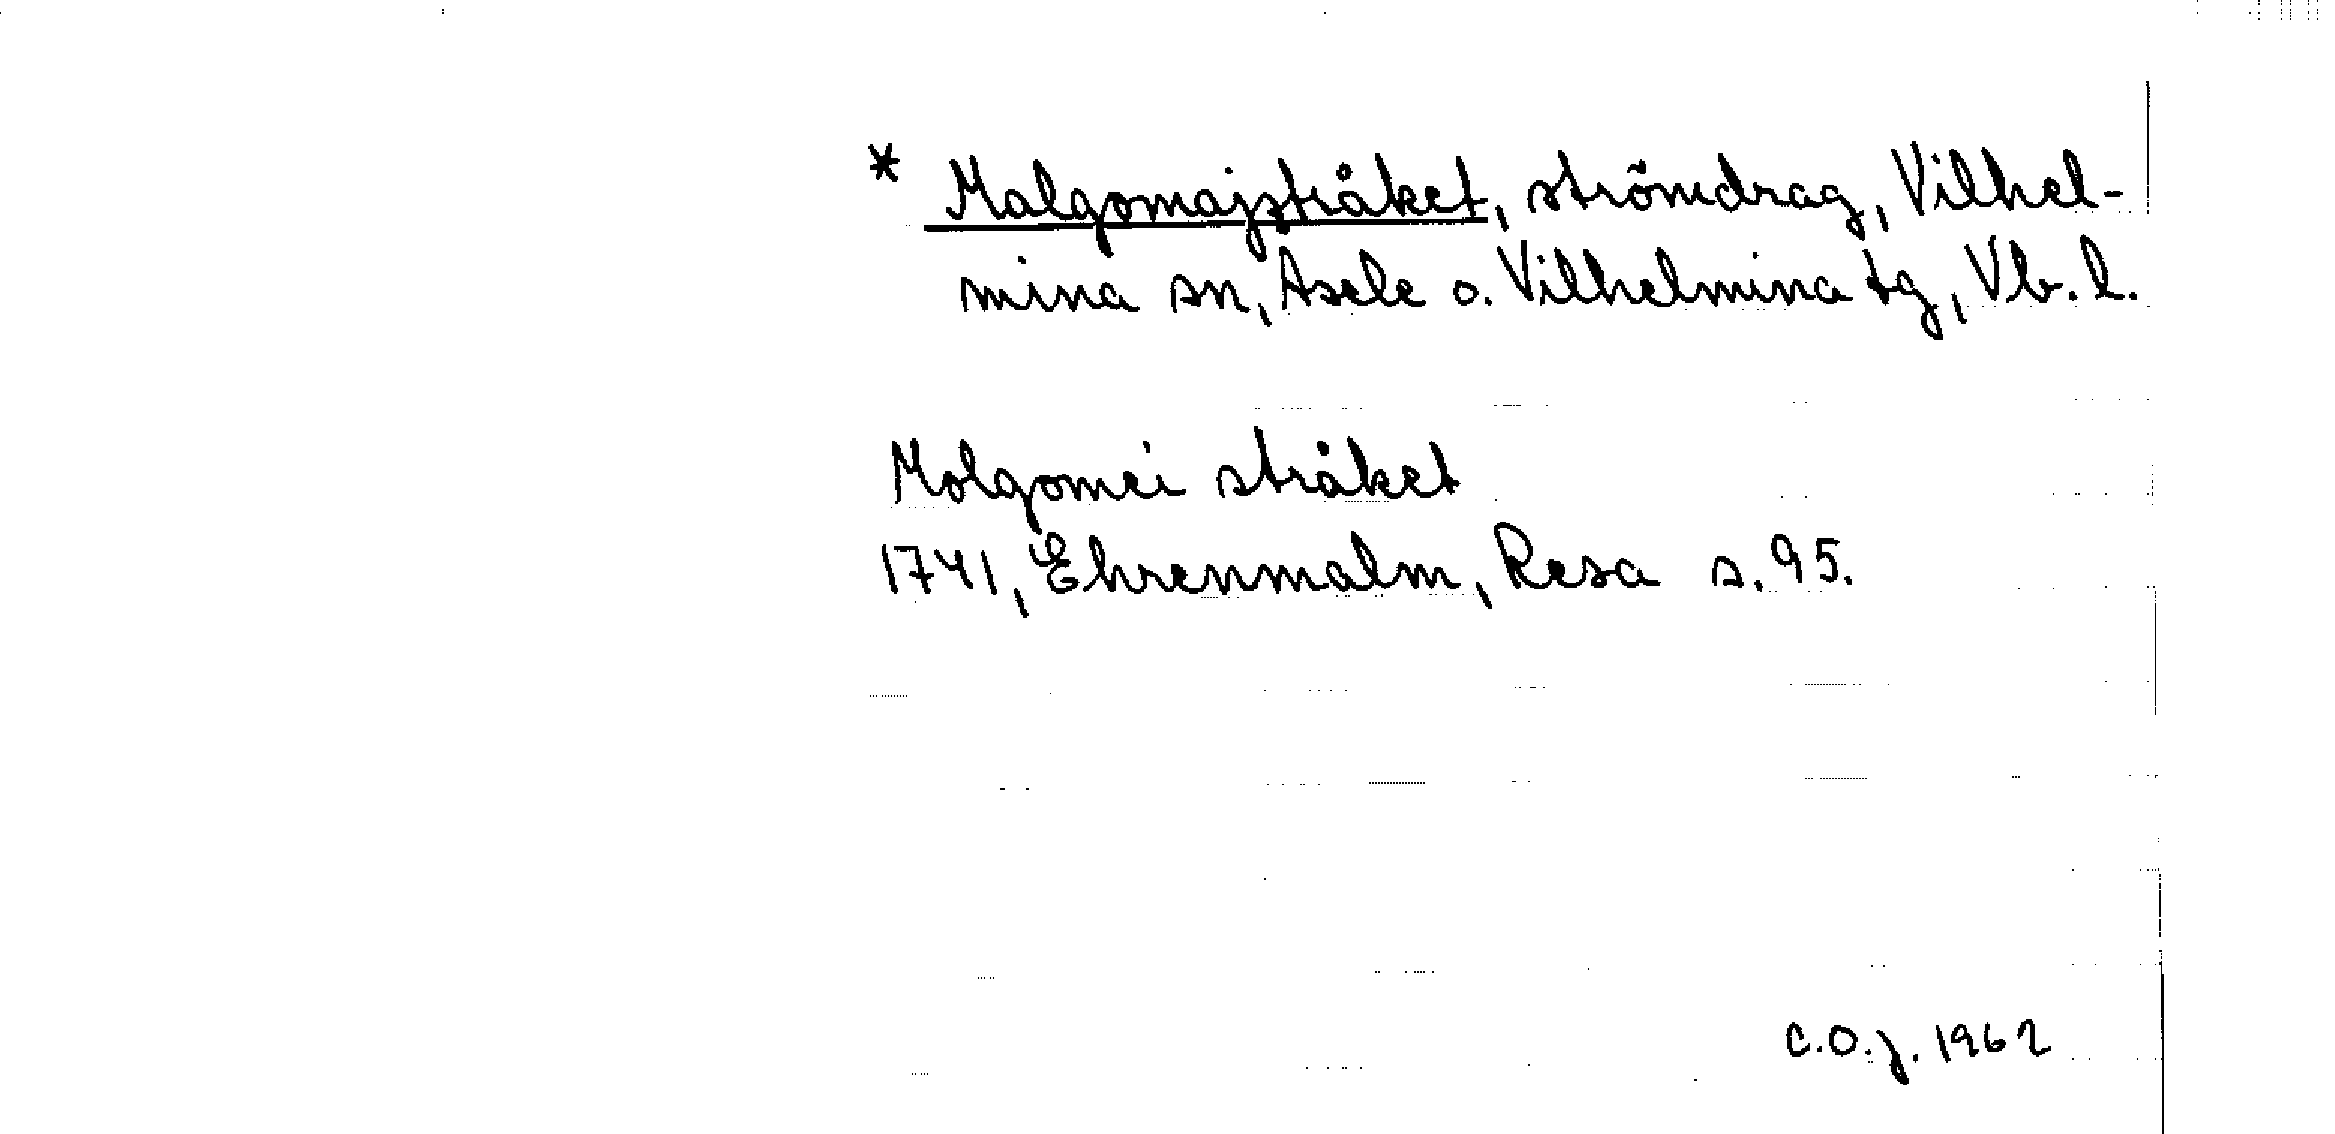 * Malgomajstråket, strömdrag, Vilhel-
mina sn, Åsele o. Vilhelmina tg, Vb. l.
Molgomei stråket
1741, Ehrenmalm, Resa s. 95.
C.O.J. 1962